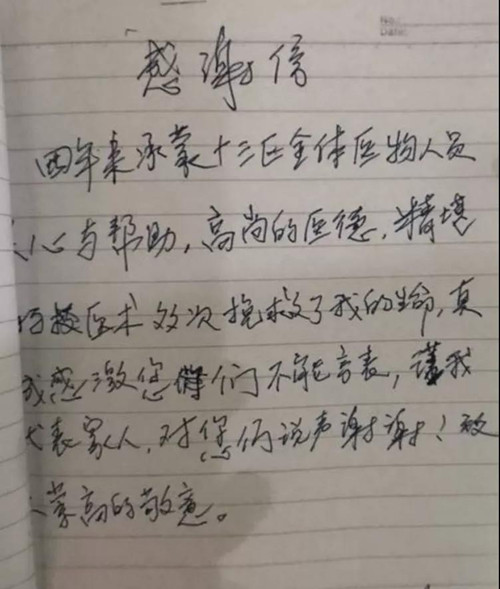 No:
Date:
感谢信
四年来承蒙十三区全体医物人员
心与帮助,高尚的医德,精填
医术 效次挽救了我的生命,真
感激您们不能言表,谨我
代表家人,对您们说声谢谢!致
崇高的敬意。